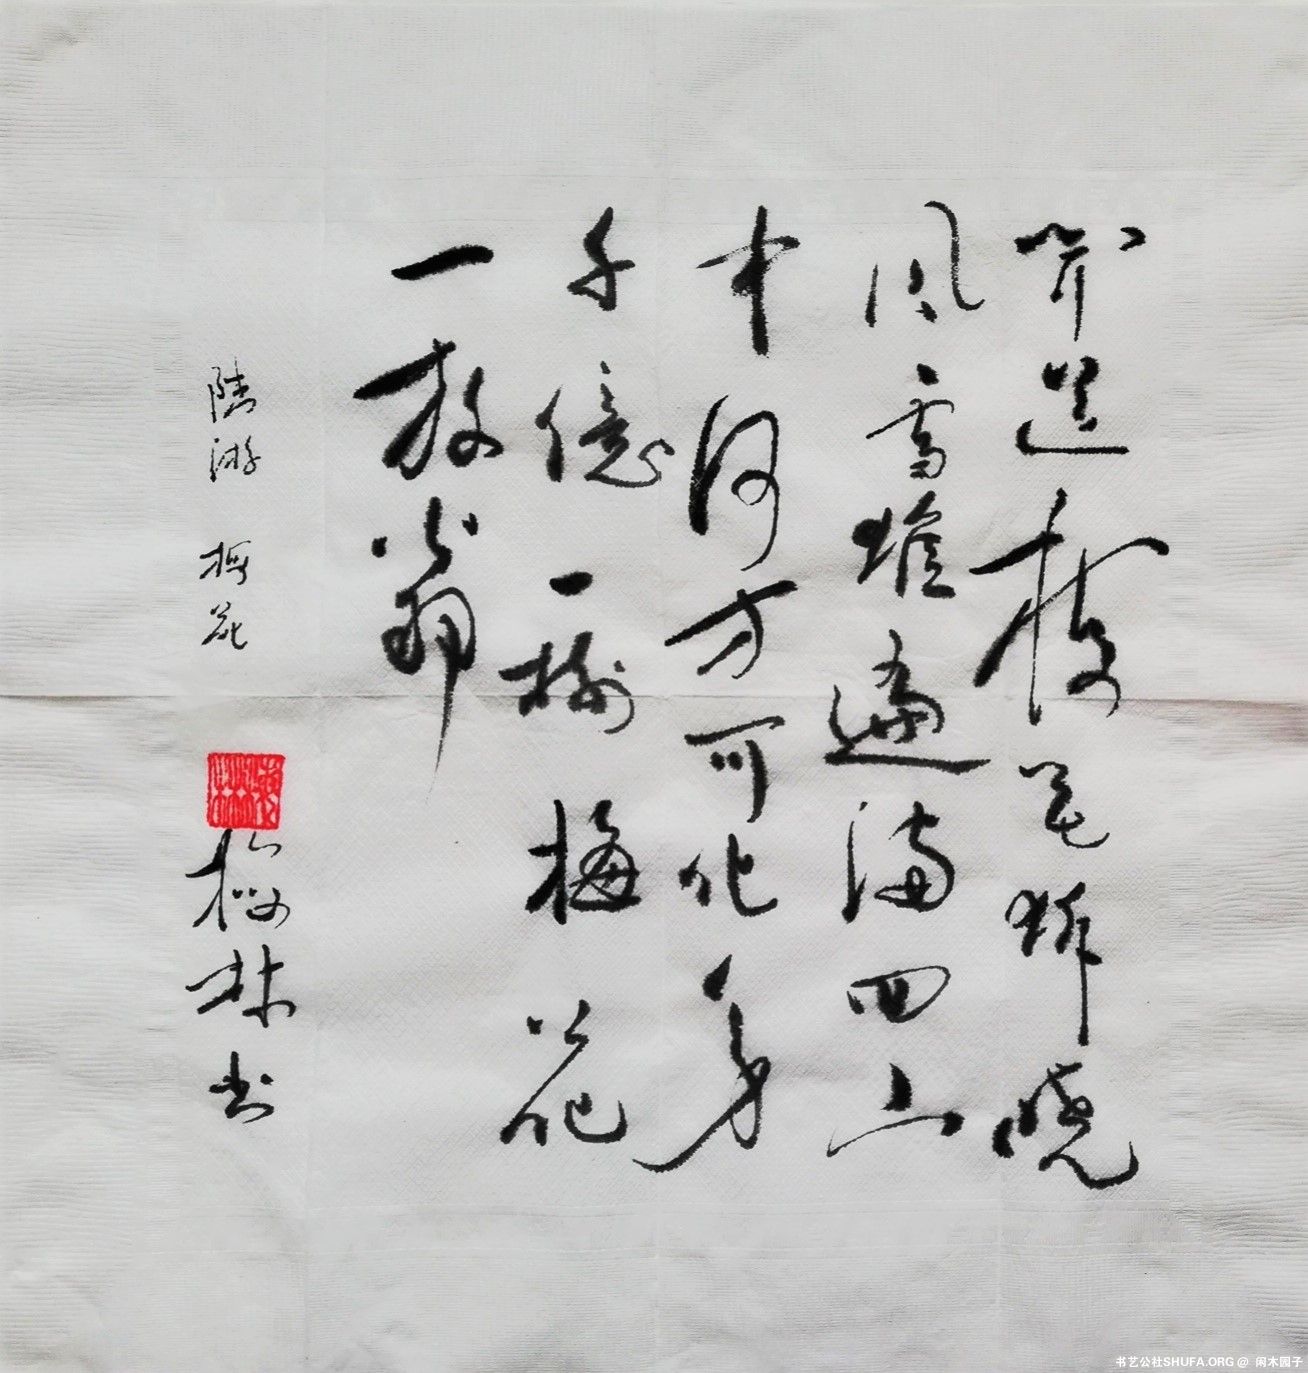 闻道梅花坼晓
风雪堆遍满四山
中何方可化身
千億一樹梅花
一放翁
陆游 梅花
林书
书艺公社SHUFA.ORG @ 闲木园子